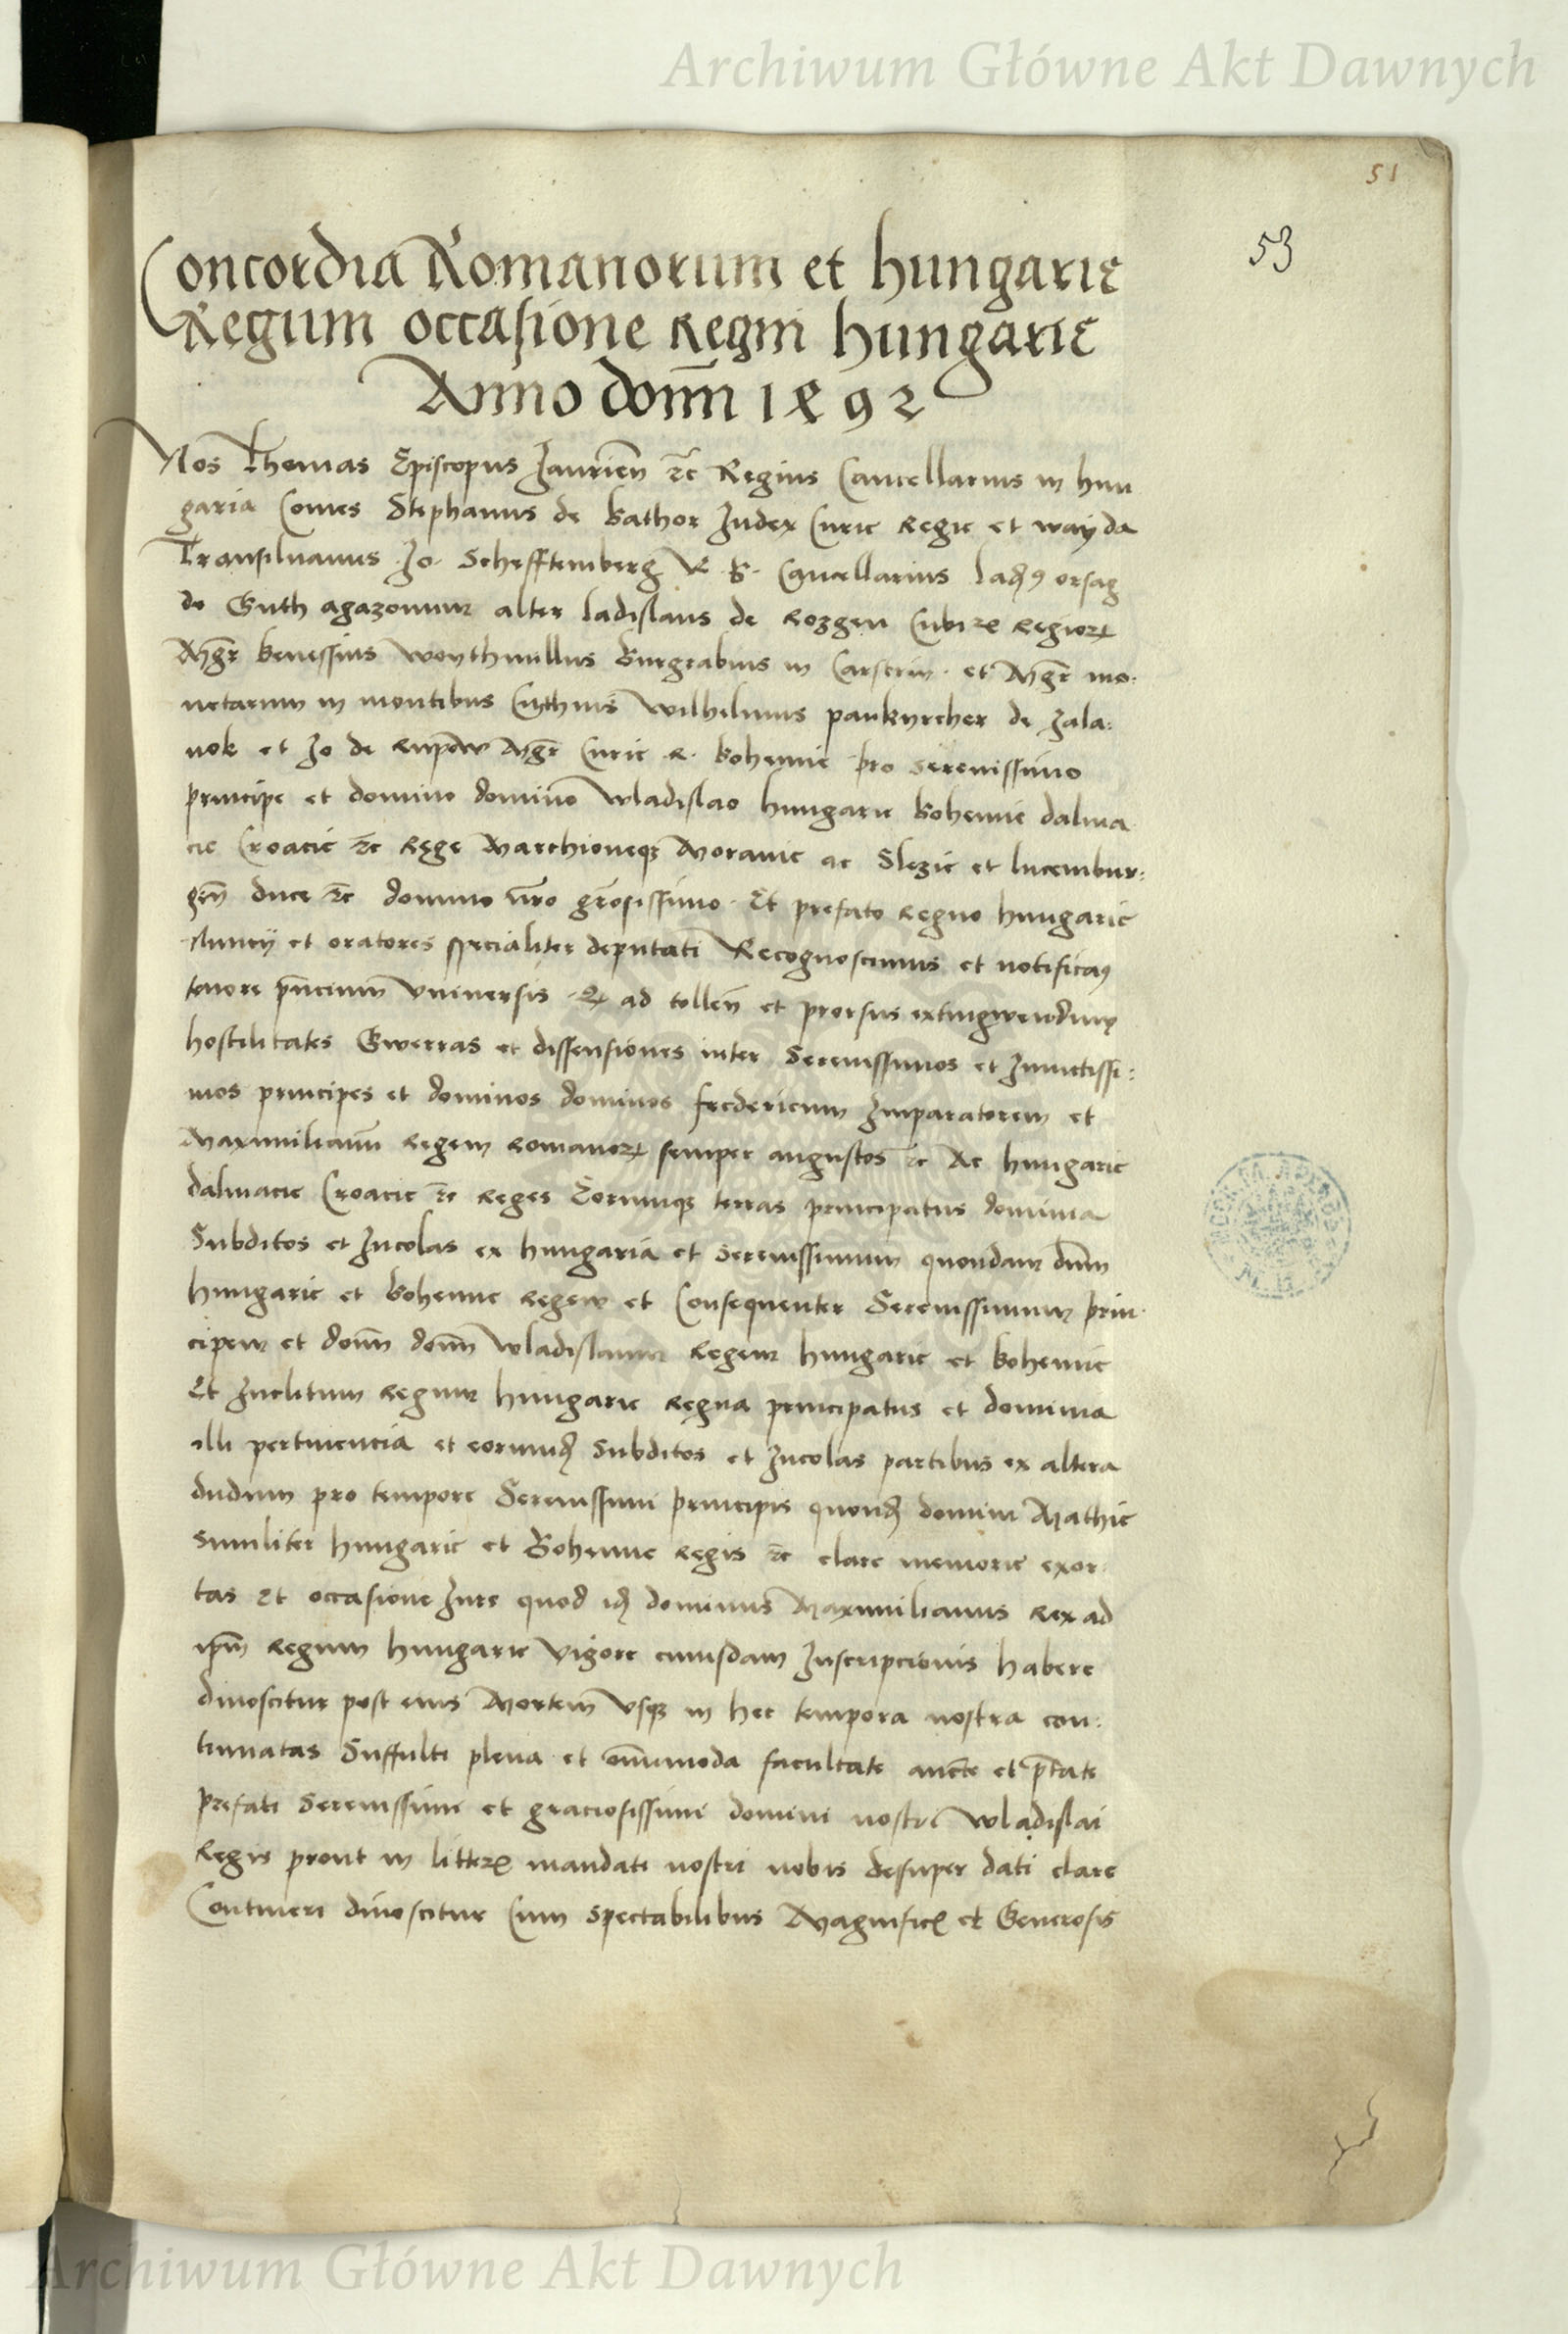 Archiwum Główne Akt Dawnych
51
53
Concordia Romanorum et hungarie
Regum occasione Regni hungarie
Anno domi 1492
Nos Thomas Episcopus Jaurien etc Regius Cancellarius in hun
garia Comes Stephanus de Bathor Judex Curie Regie et wayda
Transiluanus Jo. Schefftemberg R. B. Cancellarius lads orsag
de Guth agazonum alter ladislaus de Rozgen Cubi Regior
Mgr benessius woythmillus Burgrabius in Carsten et Mgr mo.
netarum in montibus Cuthnis Wilhilmus pankyrcher de Zala:
nok et Jo de Rupow Mgr Curie R. bohemie pro Serenissimo
principe et domino domino wladislao hungarie bohemie dalma
cie Croacie etc Rege Marchioneq Morauie ac Slezie et lucembur:
gen duce etc domino nro grosissimo. Et prefato Regno hungarie
Nuncij et oratores specialiter deputati Recognoscimus et notificas
tenore pncium Vniuersis ad tollen et prorsus extingwendum
hostilitates Gwerras et dissensiones inter Serenissimos et Inuictissi:
mos principes et dominos dominos fredericum Imparatorem et
Maximilianu Regem Romanor semper augustos etc Ac hungarie
dalmacie Croacie etc Reges Eorumq terras principatus dominia
Subditos et Incolas ex hungaria et Serenissimum quondam dum
hungarie et bohemie Regem et Consequenter Serenissimum prin.
cipem et dom dom wladislaum Regem hungarie et bohemie
Et Inclitum Regnum hungarie Regna principatus et dominia
illi pertinencia et eorumd Subditos et Incolas partibus ex altera
dudum pro tempore Serenissimi principis quond domini Mathie
similiter hungarie et Bohemie Regis etc clare memorie exor.
tas Et occasione Juris quod id dominus Maximilianus Rex ad
ipm Regnum hungarie Vigore cuiusdam Inscripcionis habere
dinoscitur post eius Mortem Vsq in hec tempora nostra con:
tinuatas Suffulti plena et omimoda facultate aucte et ptate
prefati Serenissimi et graciosissimi domini nostri Wladislai
Regis prout in litter mandati nostri nobis desuper dati clare
Contineri dinoscitur Cum Spectabilibus Magnific et Generosis
Archiwum Główne Akt Dawnych